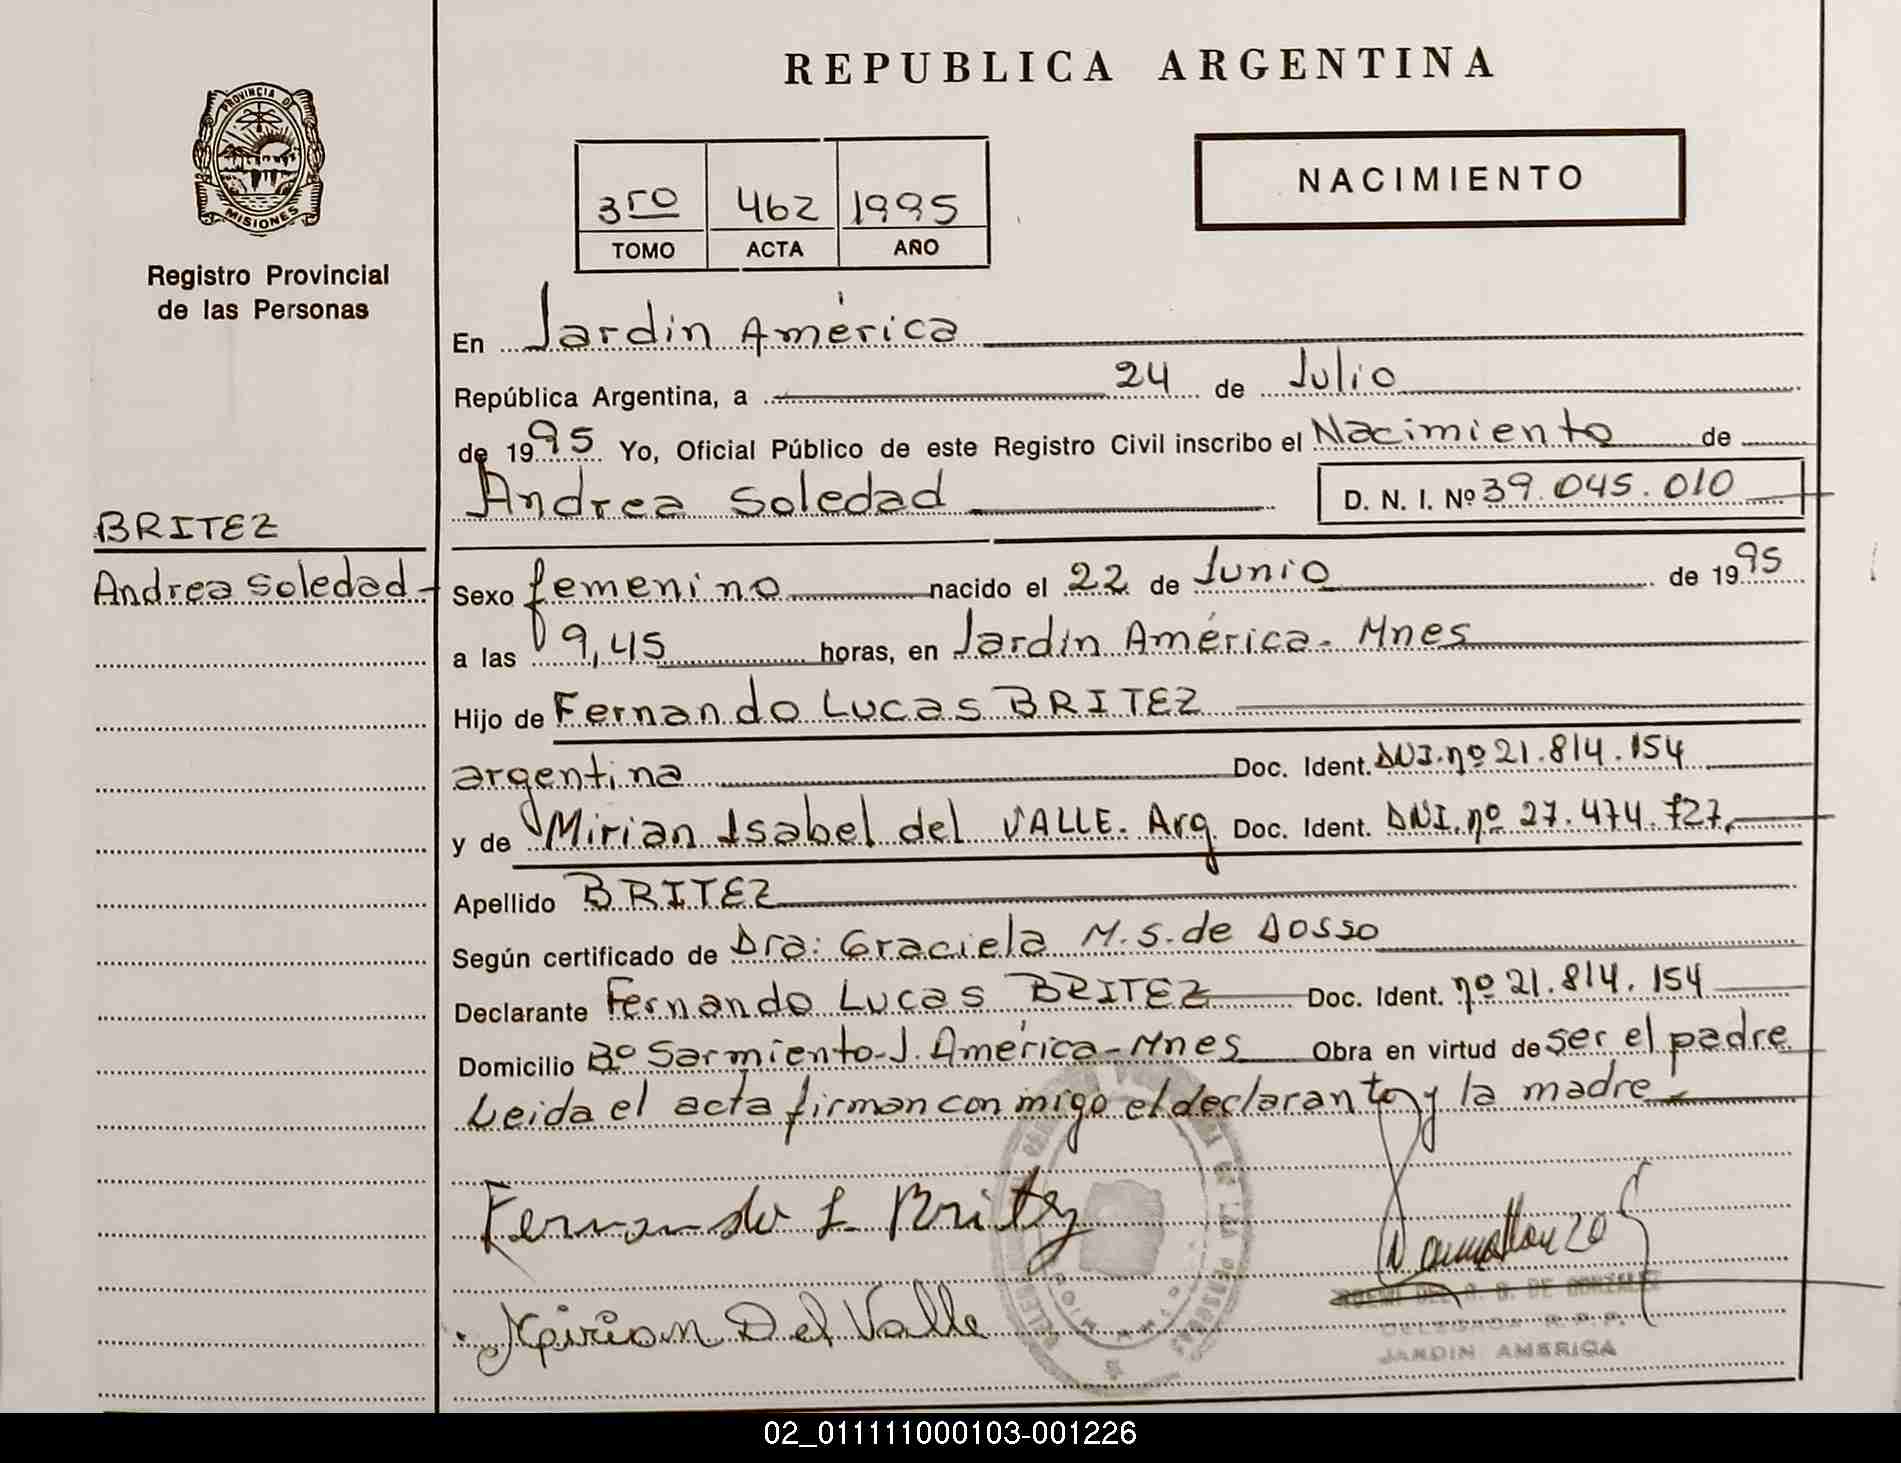 REPUBLICA ARGENTINA
PROVINCIA DE
MISIONES
Registro Provincial
de las Personas
3ro 462 1995
TOMO ACTA AÑO
NACIMIENTO
En Jardin América
República Argentina, a 24 de Julio
de 1995 Yo, Oficial Público de este Registro Civil inscribo el Nacimiento de
Andrea Soledad D. N. I. Nº 39.045.010
BRITEZ
Andrea Soledad
Sexo femenino nacido el 22 de Junio de 1995
a las 9,45 horas, en Jardin América - Mnes
Hijo de Fernando Lucas BRITEZ
argentina Doc. Ident. DNI. nº 21.814.154
y de Mirian Isabel del VALLE. Arg Doc. Ident. DNI. nº 27.474.727
Apellido BRITEZ
Según certificado de Dra: Graciela M.S. de Dosso
Declarante Fernando Lucas BRITEZ Doc. Ident. nº 21.814.154
Domicilio Bº Sarmiento - J. América - Mnes Obra en virtud de ser el padre
Leida el acta firman conmigo el declarante y la madre
Fernando L Britez
Mirian Del Valle
DE GONZALEZ
DELEGADA R.P.P.
JARDIN AMERICA
02_011111000103-001226